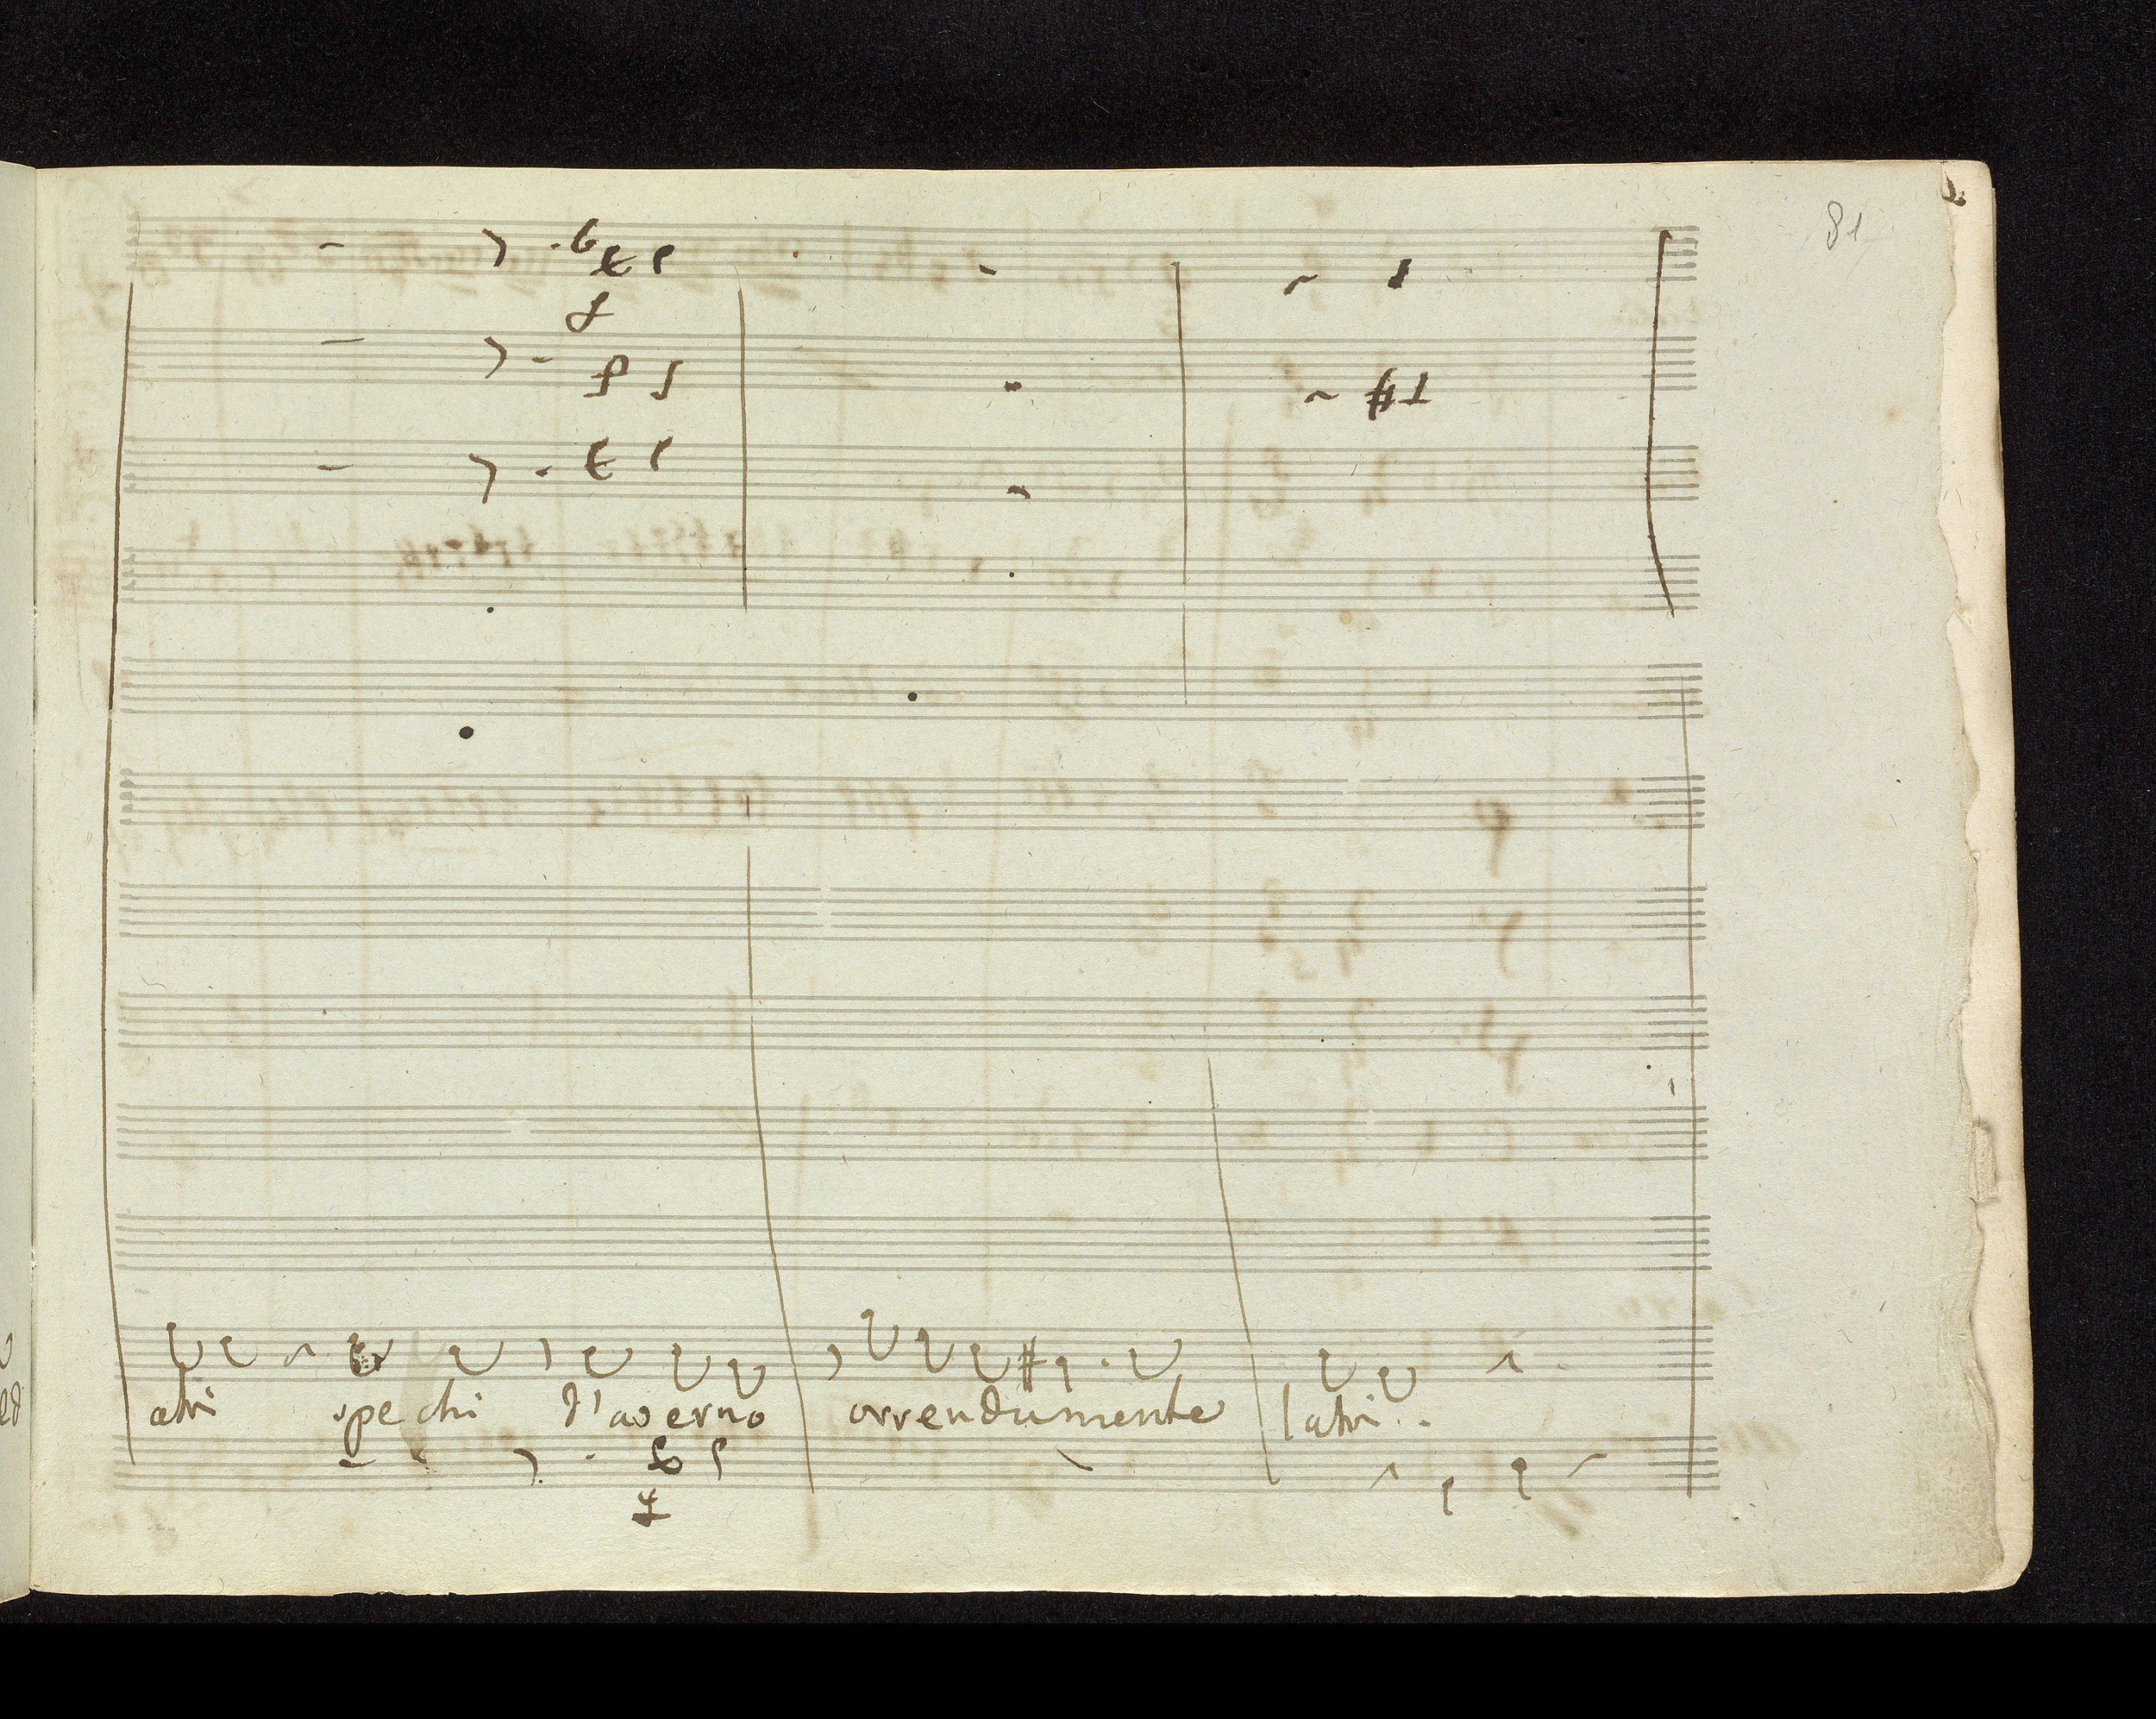 81
atri spechi d'averno orrendamente latri..